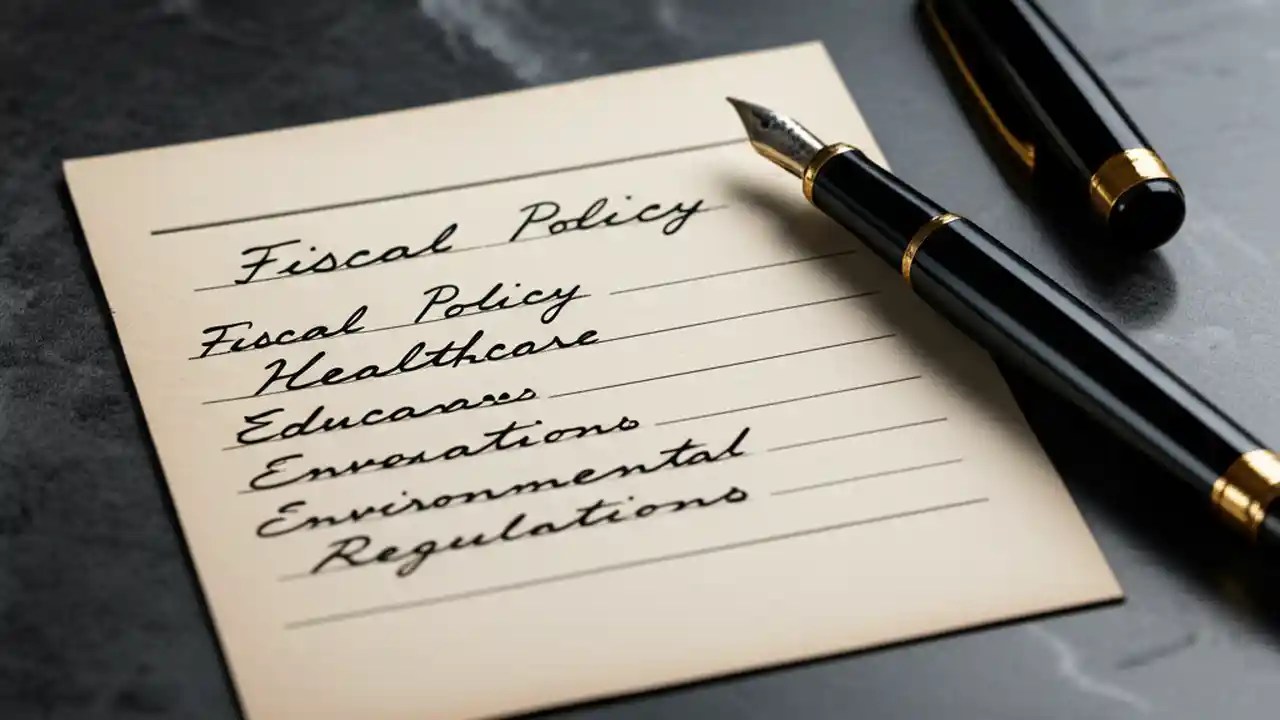 Fiscal Policy
Fiscal Policy
Healthcare
Envorations
Environmental
Regulations